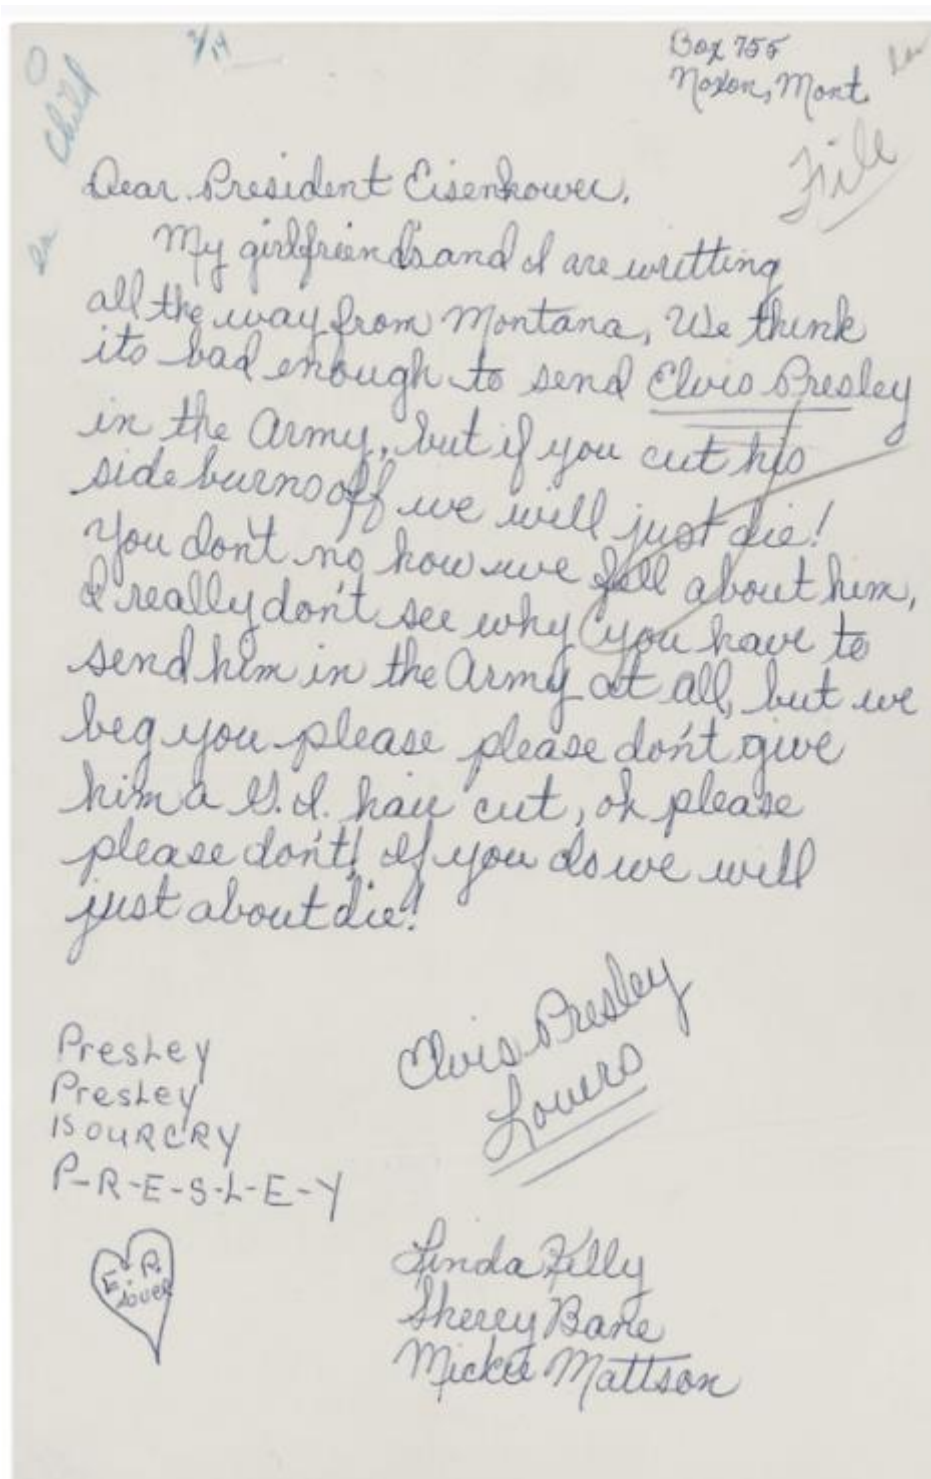 Box 755
Noxon, Mont.
3/14
Child
File
Dear President Eisenhower,
My girlfriend's and I are writting
all the way from Montana, We think
its bad enough to send Elvis Presley
in the Army, but if you cut his
side burns off we will just die!
You don't no how we fell about him,
I really don't see why you have to
send him in the Army at all, but we
beg you please please don't give
him a G.I. hair cut, oh please
please don't! If you do we will
just about die!
Elvis Presley
Lovers
Presley
Presley
IS OUR CRY
P-R-E-S-L-E-Y
E. P.
Lover
Linda Kelly
Sherry Bane
Mickie Mattson